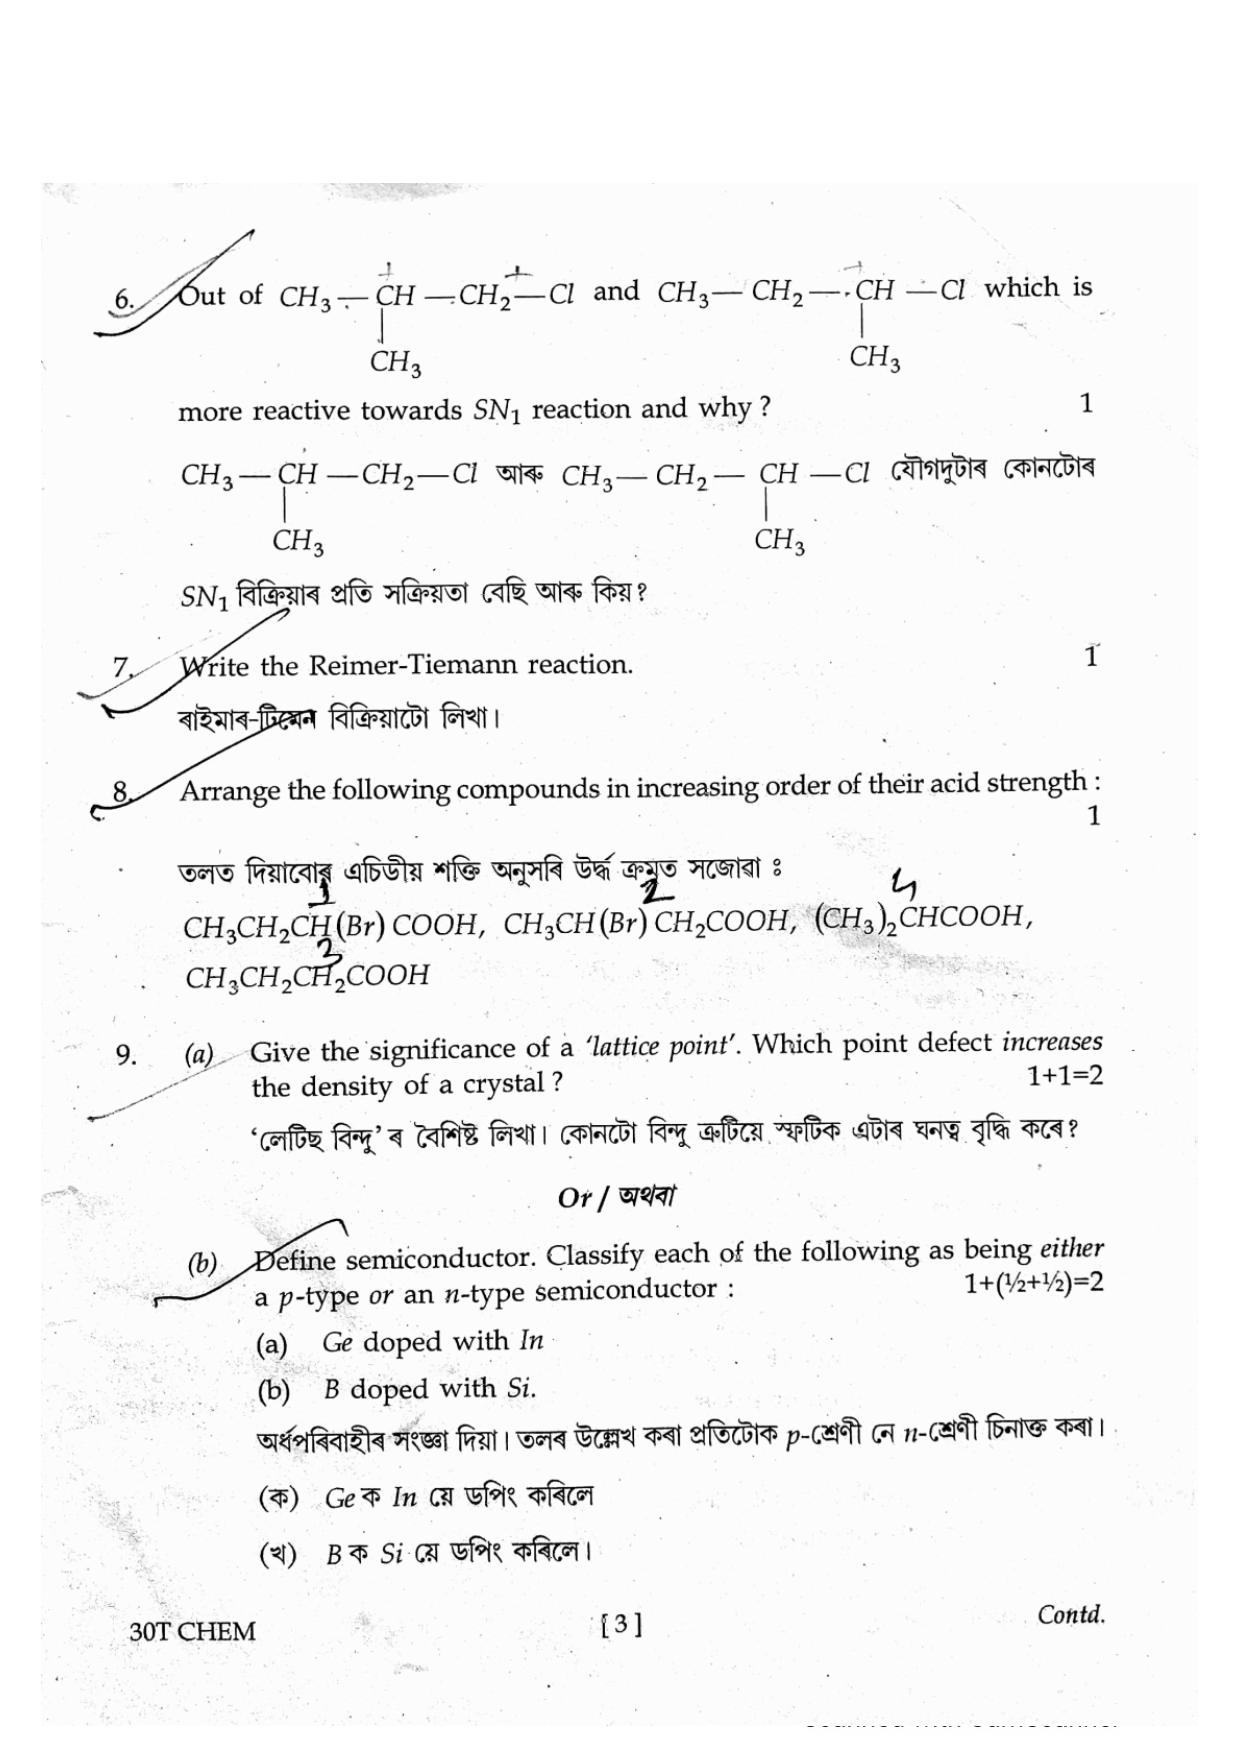 6. Out of CH3 — CH — CH2 — Cl and CH3 — CH2 — CH — Cl which is
CH3 CH3
more reactive towards SN1 reaction and why ? 1
CH3 — CH — CH2 — Cl আৰু CH3 — CH2 — CH — Cl যৌগদুটাৰ কোনটোৰ
CH3 CH3
SN1 বিক্ৰিয়াৰ প্ৰতি সক্ৰিয়তা বেছি আৰু কিয় ?
7. Write the Reimer-Tiemann reaction. 1
ৰাইমাৰ-টিমেন বিক্ৰিয়াটো লিখা।
8. Arrange the following compounds in increasing order of their acid strength :
1
তলত দিয়াবোৰ এচিডীয় শক্তি অনুসৰি উৰ্দ্ধ ক্ৰমত সজোৱা ঃ
1 2 4
CH3CH2CH(Br) COOH, CH3CH(Br) CH2COOH, (CH3)2CHCOOH,
3
CH3CH2CH2COOH
9. (a) Give the significance of a ‘lattice point’. Which point defect increases
the density of a crystal ? 1+1=2
‘লেটিছ বিন্দু’ ৰ বৈশিষ্ট লিখা। কোনটো বিন্দু ত্ৰুটিয়ে স্ফটিক এটাৰ ঘনত্ব বৃদ্ধি কৰে ?
Or / অথবা
(b) Define semiconductor. Classify each of the following as being either
a p-type or an n-type semiconductor : 1+(½+½)=2
(a) Ge doped with In
(b) B doped with Si.
অৰ্ধপৰিবাহীৰ সংজ্ঞা দিয়া। তলৰ উল্লেখ কৰা প্ৰতিটোক p-শ্ৰেণী নে n-শ্ৰেণী চিনাক্ত কৰা।
(ক) Ge ক In য়ে ডপিং কৰিলে
(খ) B ক Si য়ে ডপিং কৰিলে।
30T CHEM [ 3 ] Contd.